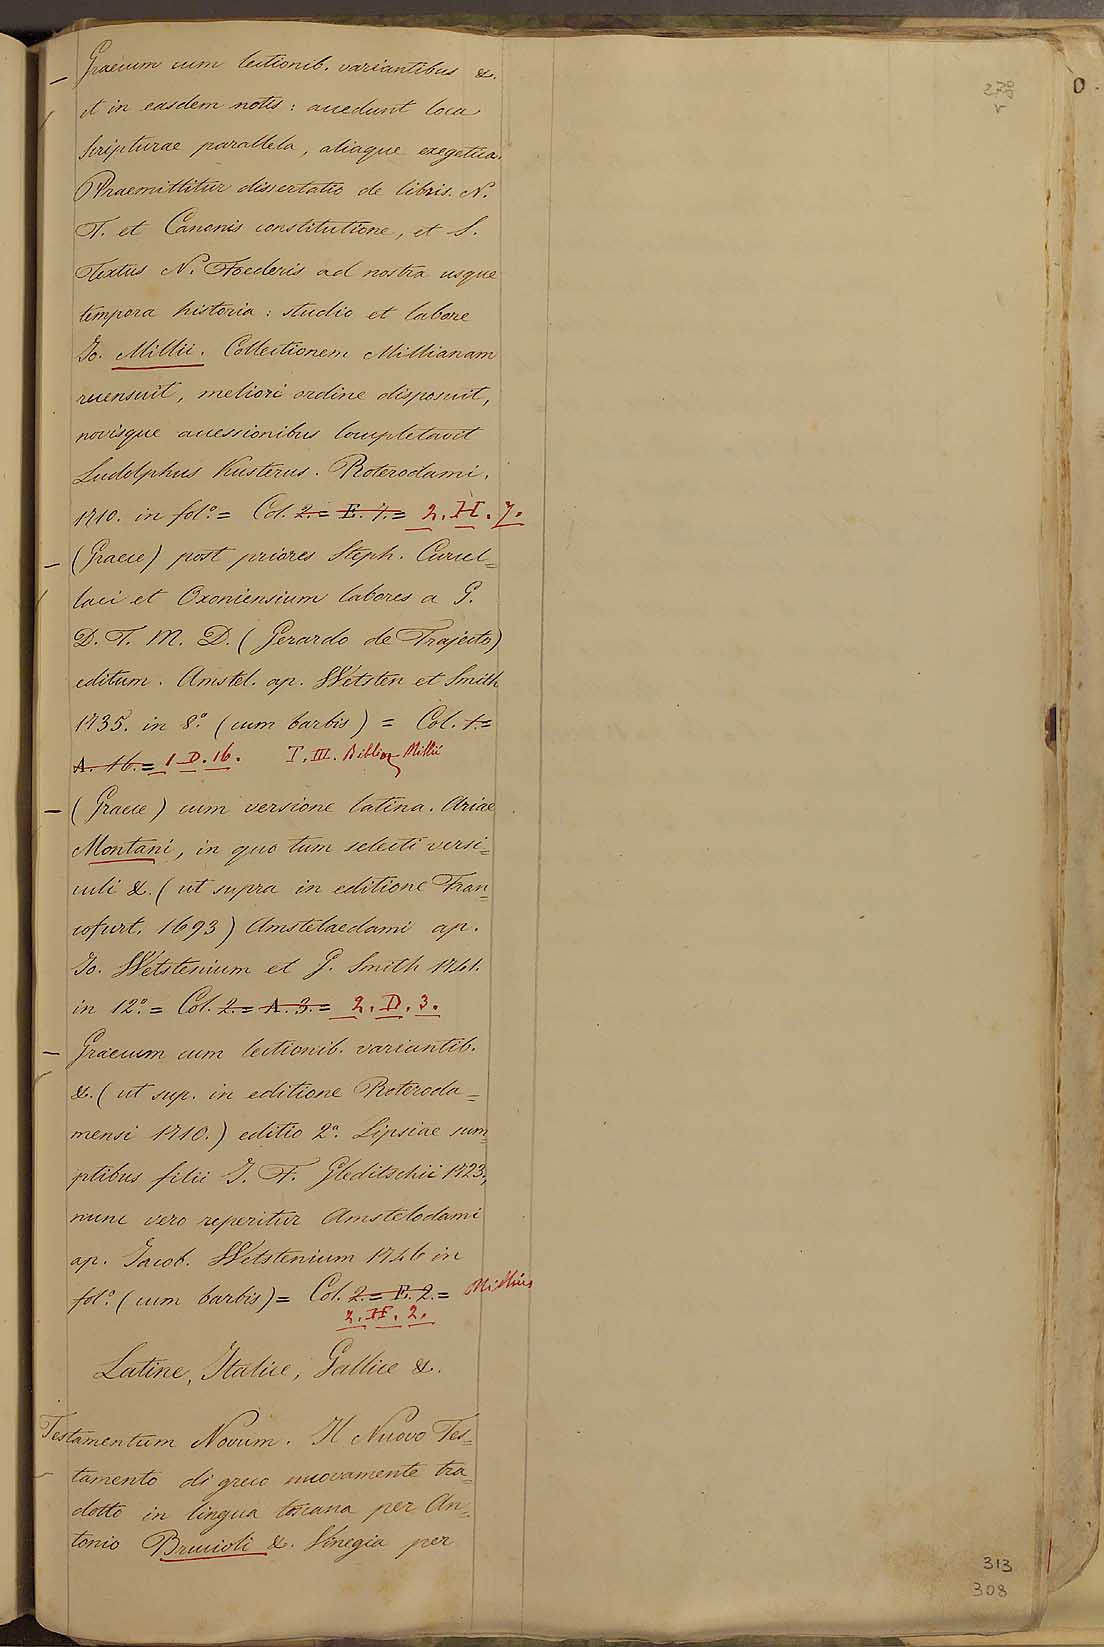 — Graecum cum lectionib. variantibus &.
et in easdem notis: accedunt loca
Scripturae parallela, aliaque exegetica.
Praemittitur dissertatio de libris. N.
T. et Canonis constitutione, et S.
Textus N. Foederis ad nostra usque
tempora historia: studio et labore
Jo. Millii. Collectionem Millianam
recensuit, meliori ordine disposuit,
novisque accessionibus locupletavit
Ludolphus Kusterus. Roterodami.
1710. in fol.º = Col. 2. = E. 7. = 2. H. 7.
— (Graece) post priores Steph. Curcel=
laei et Oxoniensium labores a G.
D. T. M. D. (Gerardo de Trajecto)
editum. Amstel. ap. Wetsten et Smith
1735. in 8º. (cum barbis) = Col. 1. =
A. 16. = 1 D. 16. T. III. Millii
— (Graece) cum versione latina. Ariae
Montani, in quo tum selecti versi=
culi &. (ut supra in editione Fran=
cofurt. 1693) Amstelaedami ap.
Jo. Wetstenium et G. Smith 1741.
in 12º. = Col. 2. = A. 3. = 2. D. 3.
— Graecum cum lectionib. variantib.
&. (ut sup. in editione Roteroda=
mensi 1710.) editio 2ª. Lipsiae sum
ptibus filii J. F. Gleditschii 1723,
nunc vero reperitur Amstelodami
ap. Jacob. Wetstenium 1746 in
fol.º (cum barbis) = Col. 2. = E. 2. = Millius
2. H. 2.
Latine, Italice, Gallice &.
Testamentum Novum. Il Nuovo Tes=
tamento di greco nuovamente tra=
dotto in lingua toscana per An=
tonio Brucioli &. Vinegia per
313
308